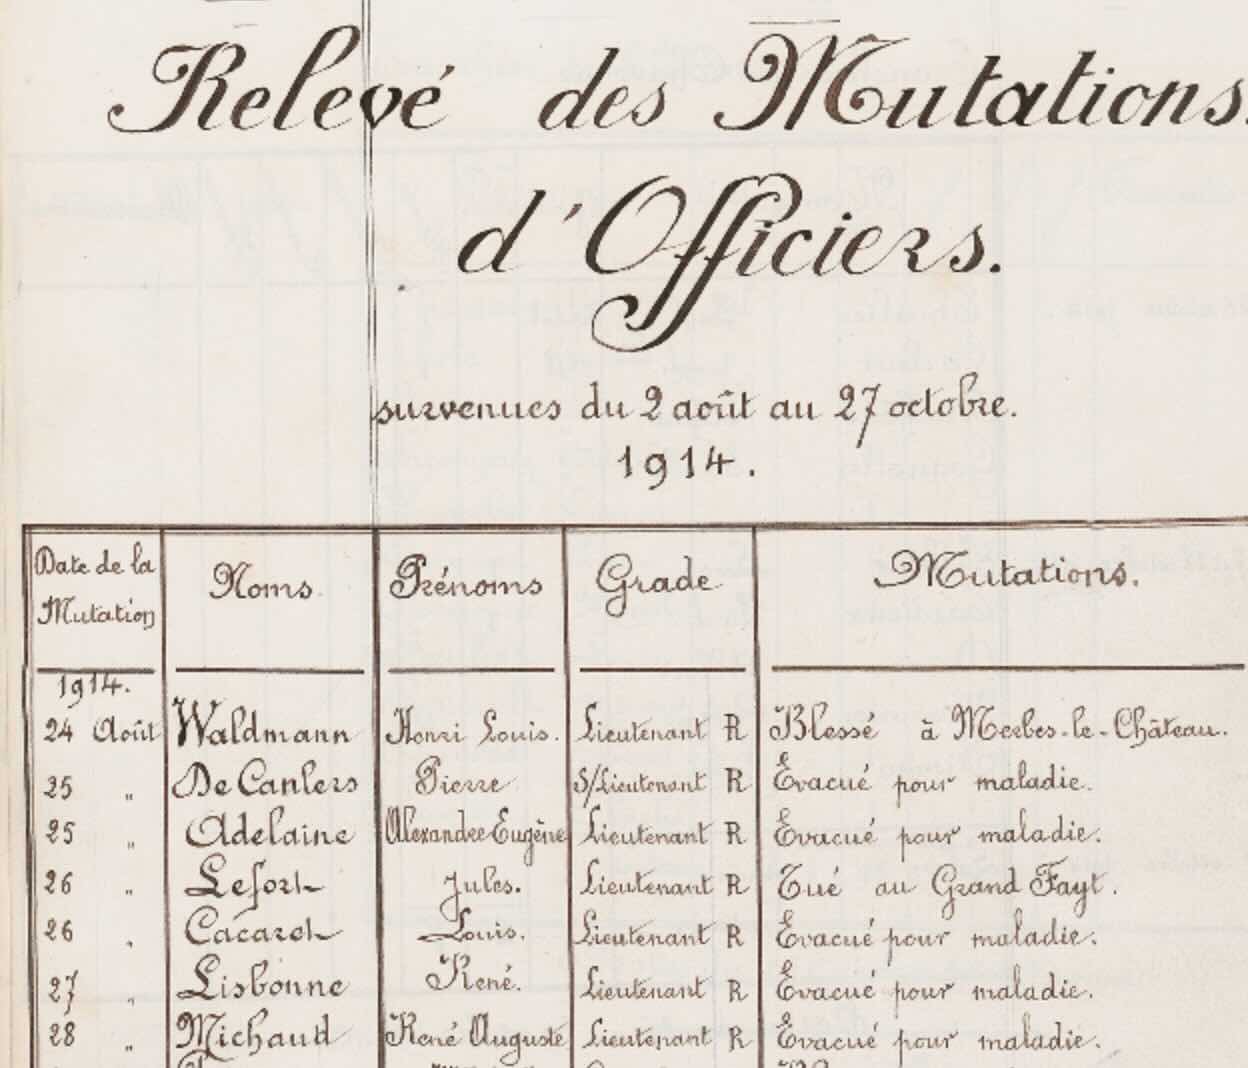 Relevé des Mutations
d'Officiers.
survenues du 2 août au 27 octobre.
1914.
Date de la Mutation Noms. Prénoms Grade Mutations.
1914.
24 Août Waldmann Henri Louis. Lieutenant R Blessé à Merbes-le-Château.
25 " De Canlers Pierre S/Lieutenant R Evacué pour maladie.
25 " Adelaine Alexandre Eugène Lieutenant R Evacué pour maladie.
26 " Lefort Jules. Lieutenant R Tué au Grand Fayt.
26 " Cacaret Louis. Lieutenant R Evacué pour maladie.
27 " Lisbonne René. Lieutenant R Evacué pour maladie.
28 " Michaud René Auguste Lieutenant R Evacué pour maladie.